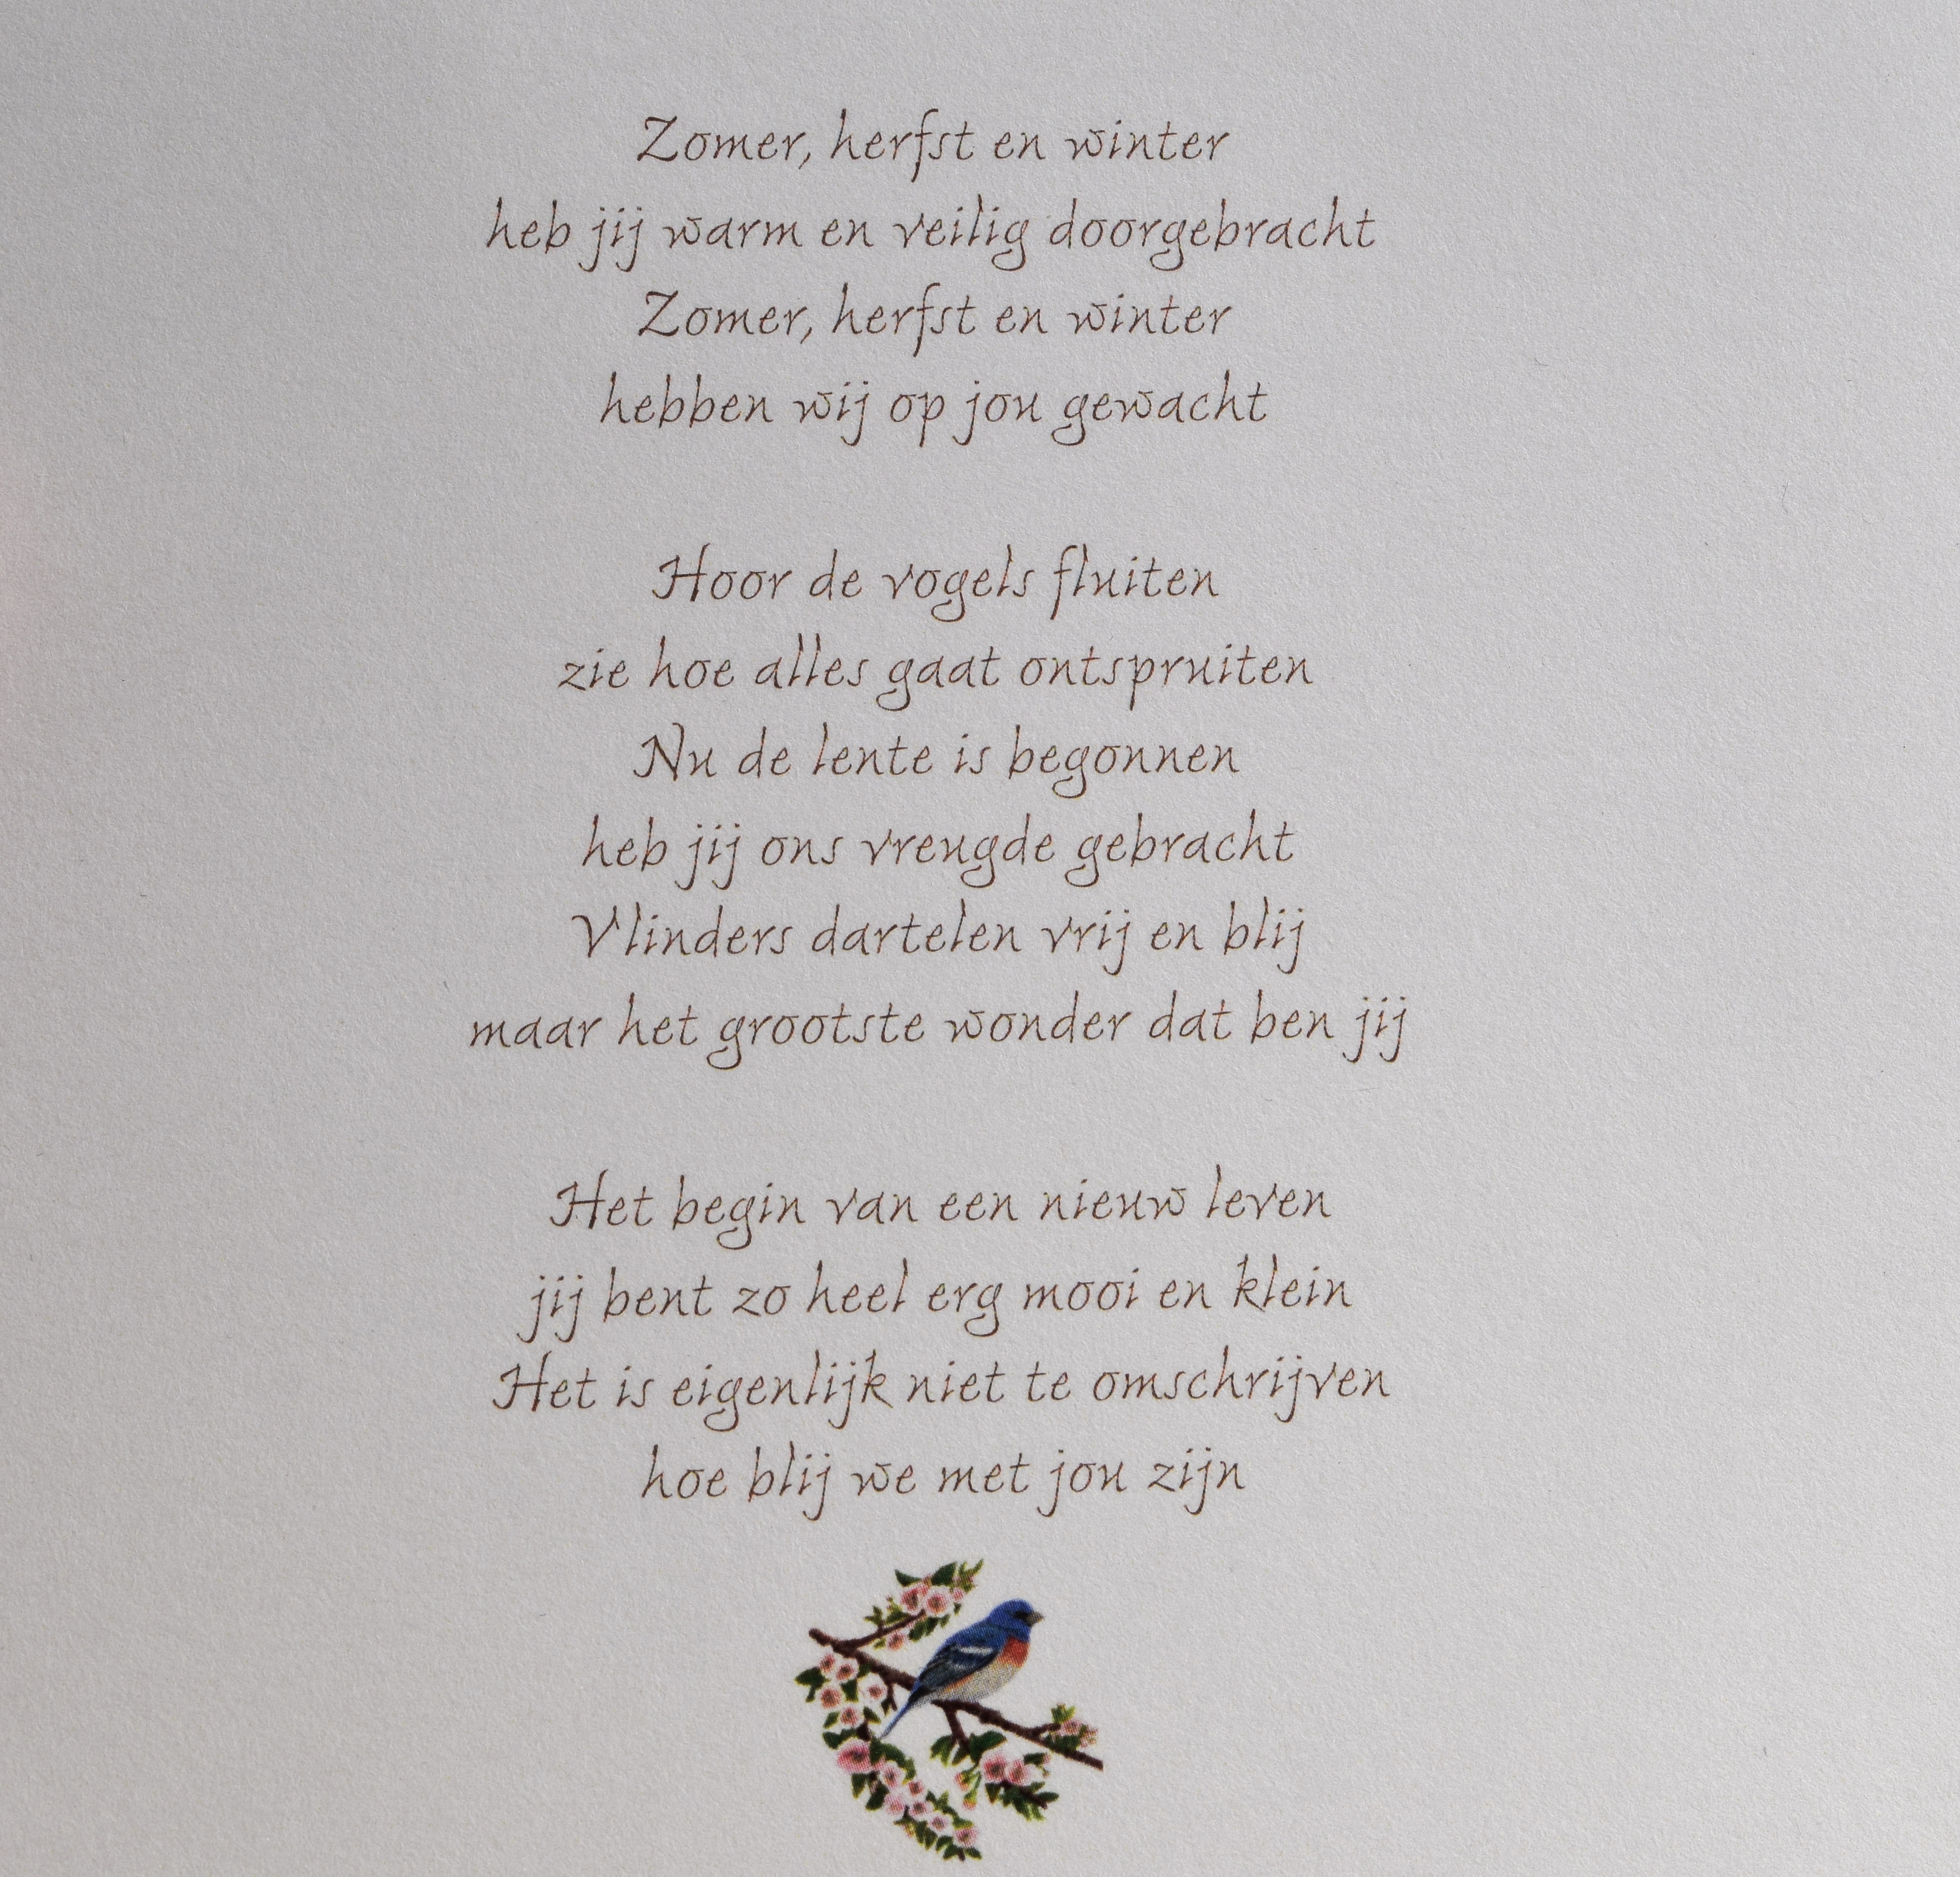 Zomer, herfst en winter
heb jij warm en veilig doorgebracht
Zomer, herfst en winter
hebben wij op jou gewacht
Hoor de vogels fluiten
zie hoe alles gaat ontspruiten
Nu de lente is begonnen
heb jij ons vreugde gebracht
Vlinders dartelen vrij en blij
maar het grootste wonder dat ben jij
Het begin van een nieuw leven
jij bent zo heel erg mooi en klein
Het is eigenlijk niet te omschrijven
hoe blij we met jou zijn